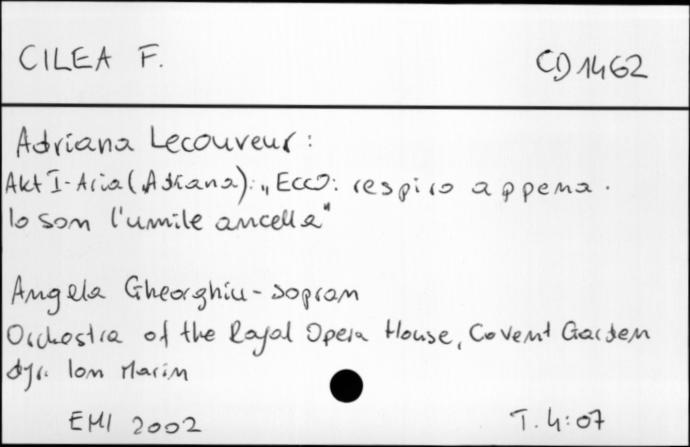 CILEA F.
CD 1462
Adriana Lecouvreur:
Akt I - Aria (Adriana): „Ecco: respiro appena.
Io son l'umile ancella"
Angela Gheorghiu - sopran
Orchestra of the Royal Opera House, Covent Garden
dyr. Ion Marin
EMI 2002
T. 4:07